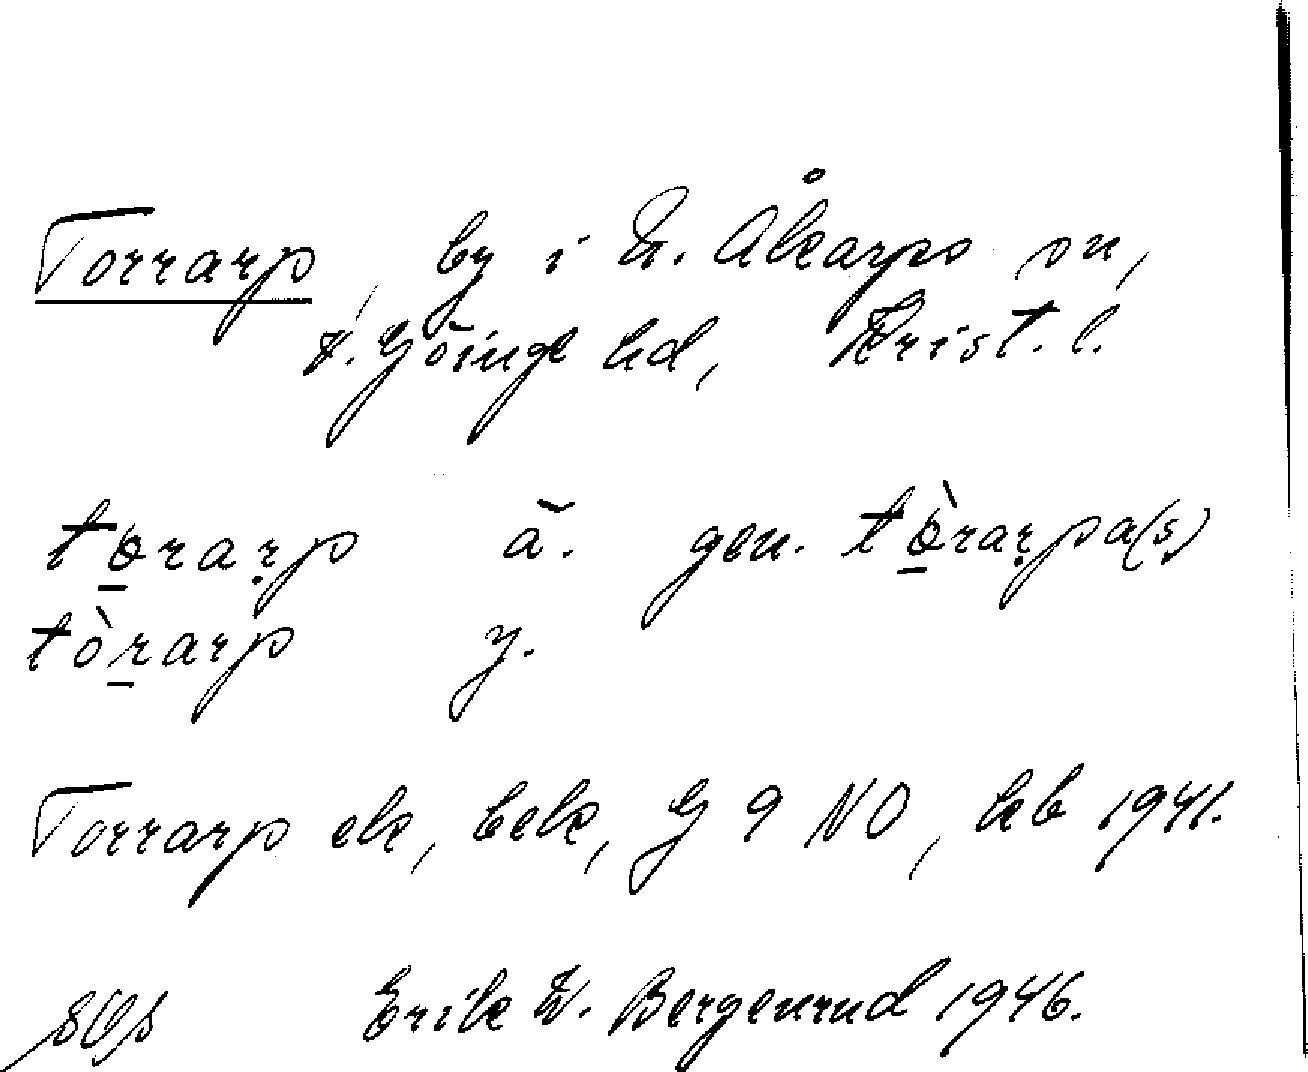 Torrarp, by i N. Åkarps sn,
V. Göinge hd, Krist. l.
tɵrarp ä. gen. tɵ̀rarpa(s)
tòrarp y.
Torrarp ek, bek, G 9 NO, kb 1941.
Erik W. Bergenrud 1946.